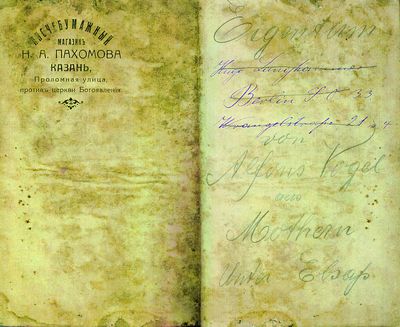 ПИСЧЕБУМАЖНЫЙ
МАГАЗИНЪ
Н. А. ПАХОМОВА
КАЗАНЬ,
Проломная улица,
противъ церкви Богоявленія.
Eigentum
Hugo
Berlin S O 33
Wrangelstraße 21
von
Alfons Vogel
aus
Mothern
Unter Elsaß